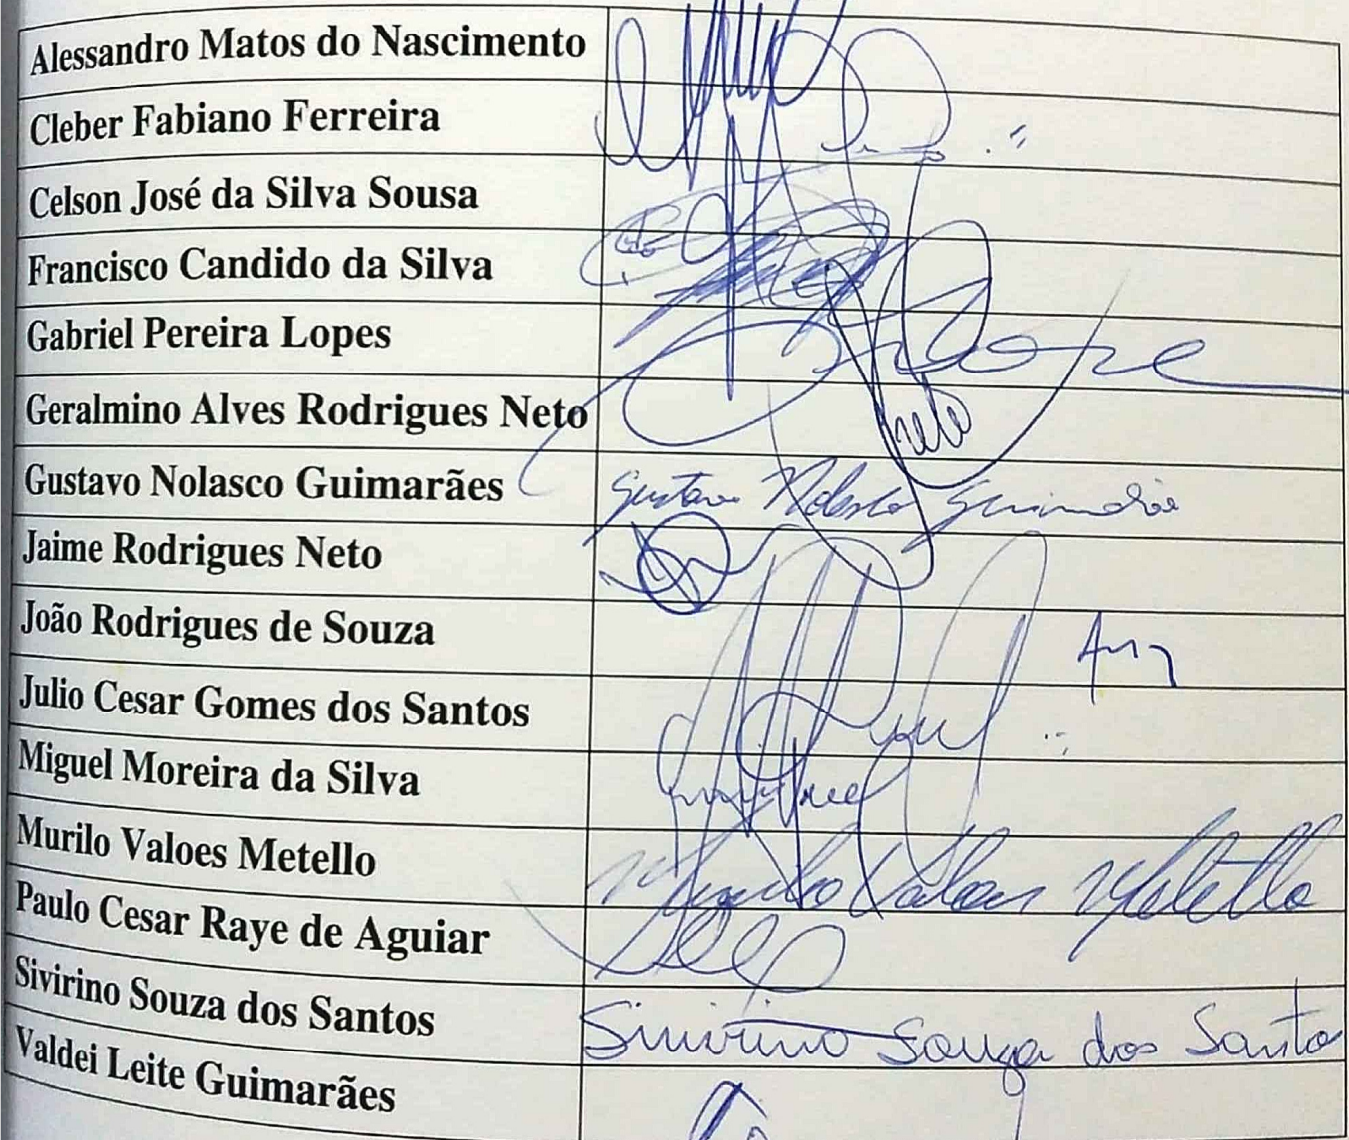 Alessandro Matos do Nascimento
Cleber Fabiano Ferreira
Celson José da Silva Sousa
Francisco Candido da Silva
Gabriel Pereira Lopes
Geralmino Alves Rodrigues Neto
Neto
Gustavo Nolasco Guimarães Gustavo Nolasco Guimarães
Jaime Rodrigues Neto
João Rodrigues de Souza
Julio Cesar Gomes dos Santos
Miguel Moreira da Silva
Murilo Valoes Metello Murilo Valoes Metello
Paulo Cesar Raye de Aguiar
Sivirino Souza dos Santos Sivirino Souza dos Santo
Valdei Leite Guimarães